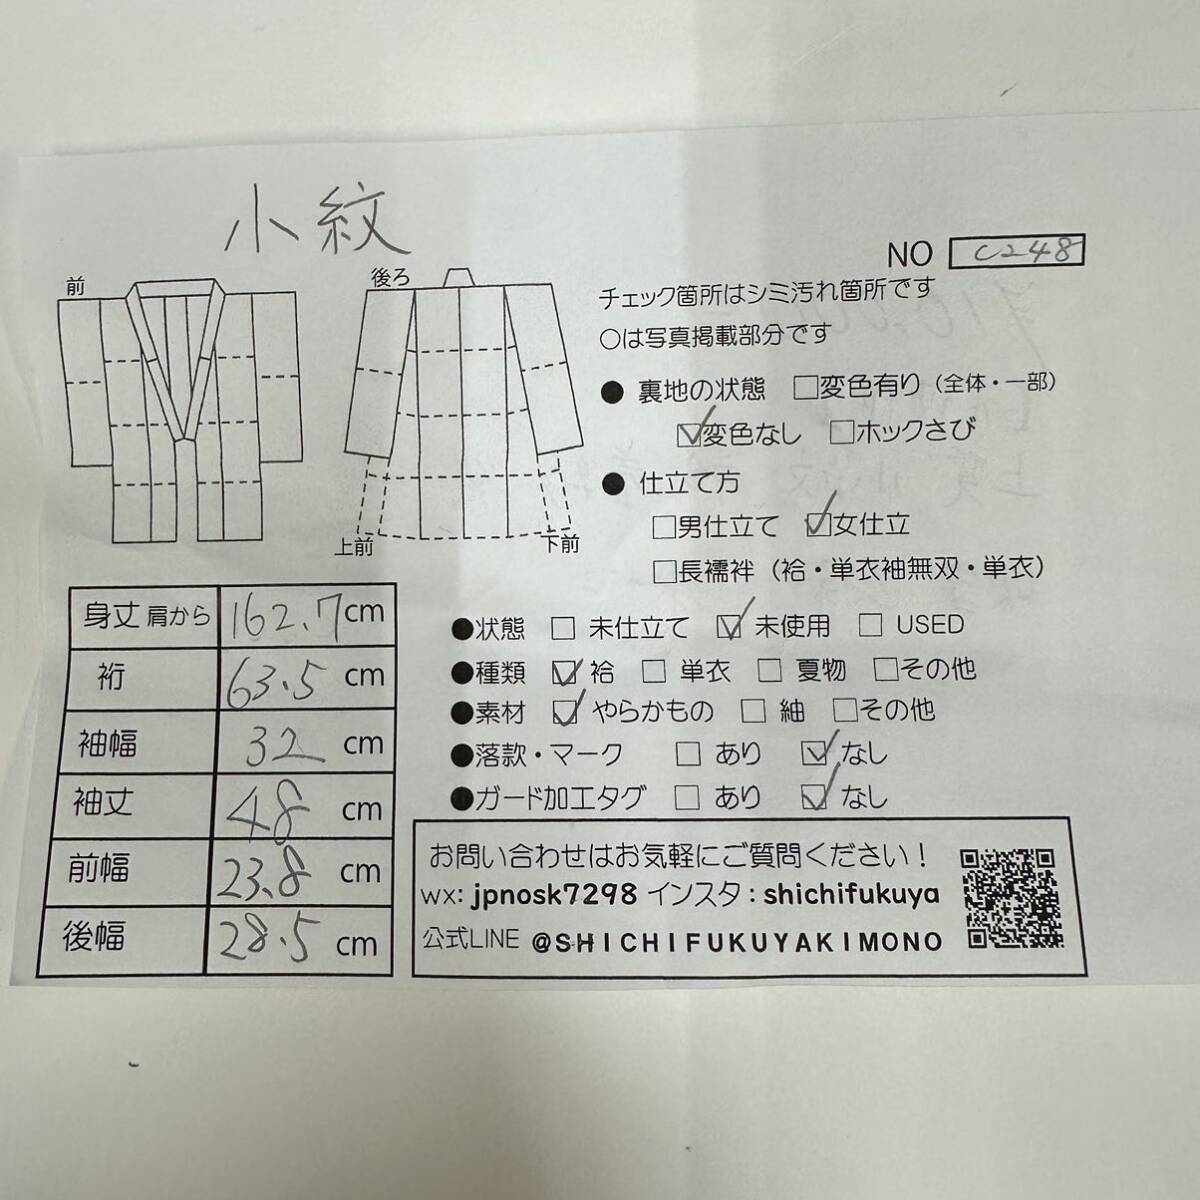 小紋
NO C248
前
後ろ
上前
下前
チェック箇所はシミ汚れ箇所です
○は写真掲載部分です
● 裏地の状態 □変色有り（全体・一部）
☑変色なし □ホックさび
● 仕立て方
□男仕立て ☑女仕立
□長襦袢（袷・単衣袖無双・単衣）
●状態 □ 未仕立て ☑ 未使用 □ USED
●種類 ☑ 袷 □ 単衣 □ 夏物 □その他
●素材 ☑ やらかもの □ 紬 □その他
●落款・マーク □ あり ☑ なし
●ガード加工タグ □ あり ☑ なし
身丈 肩から 162.7 cm
裄 63.5 cm
袖幅 32 cm
袖丈 48 cm
前幅 23.8 cm
後幅 28.5 cm
お問い合わせはお気軽にご質問ください！
wx: jpnosk7298 インスタ : shichifukuya
公式LINE @SHICHIFUKUYAKIMONO